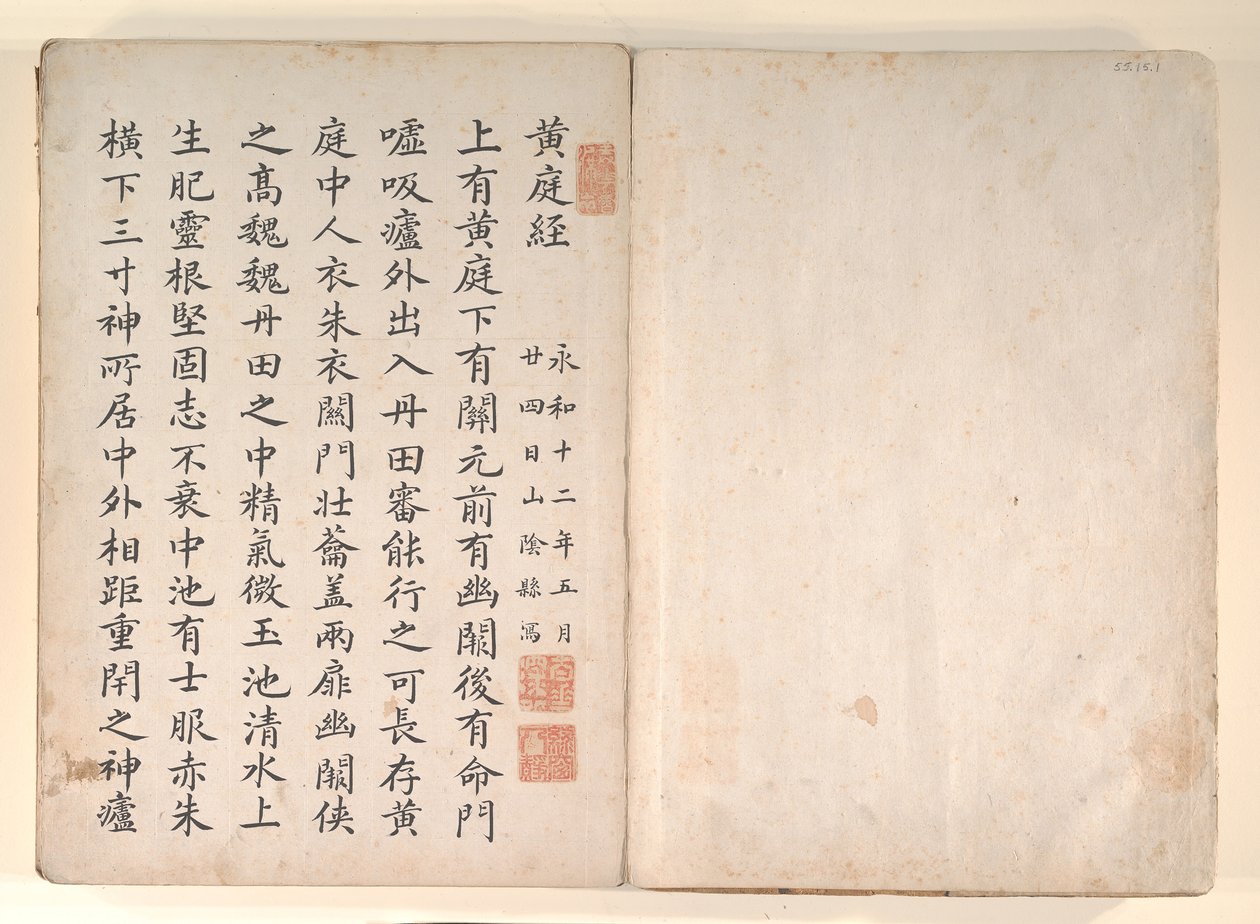 55.15.1
黄庭経
永和十二年五月
廿四日山陰縣寫
上有黄庭下有關元前有幽闕後有命門
嘘吸廬外出入丹田審能行之可長存黄
庭中人衣朱衣關門壯蘥盖兩扉幽闕侠
之髙魏魏丹田之中精氣微玉池清水上
生肥靈根堅固志不衰中池有士服赤朱
橫下三寸神所居中外相距重閇之神廬